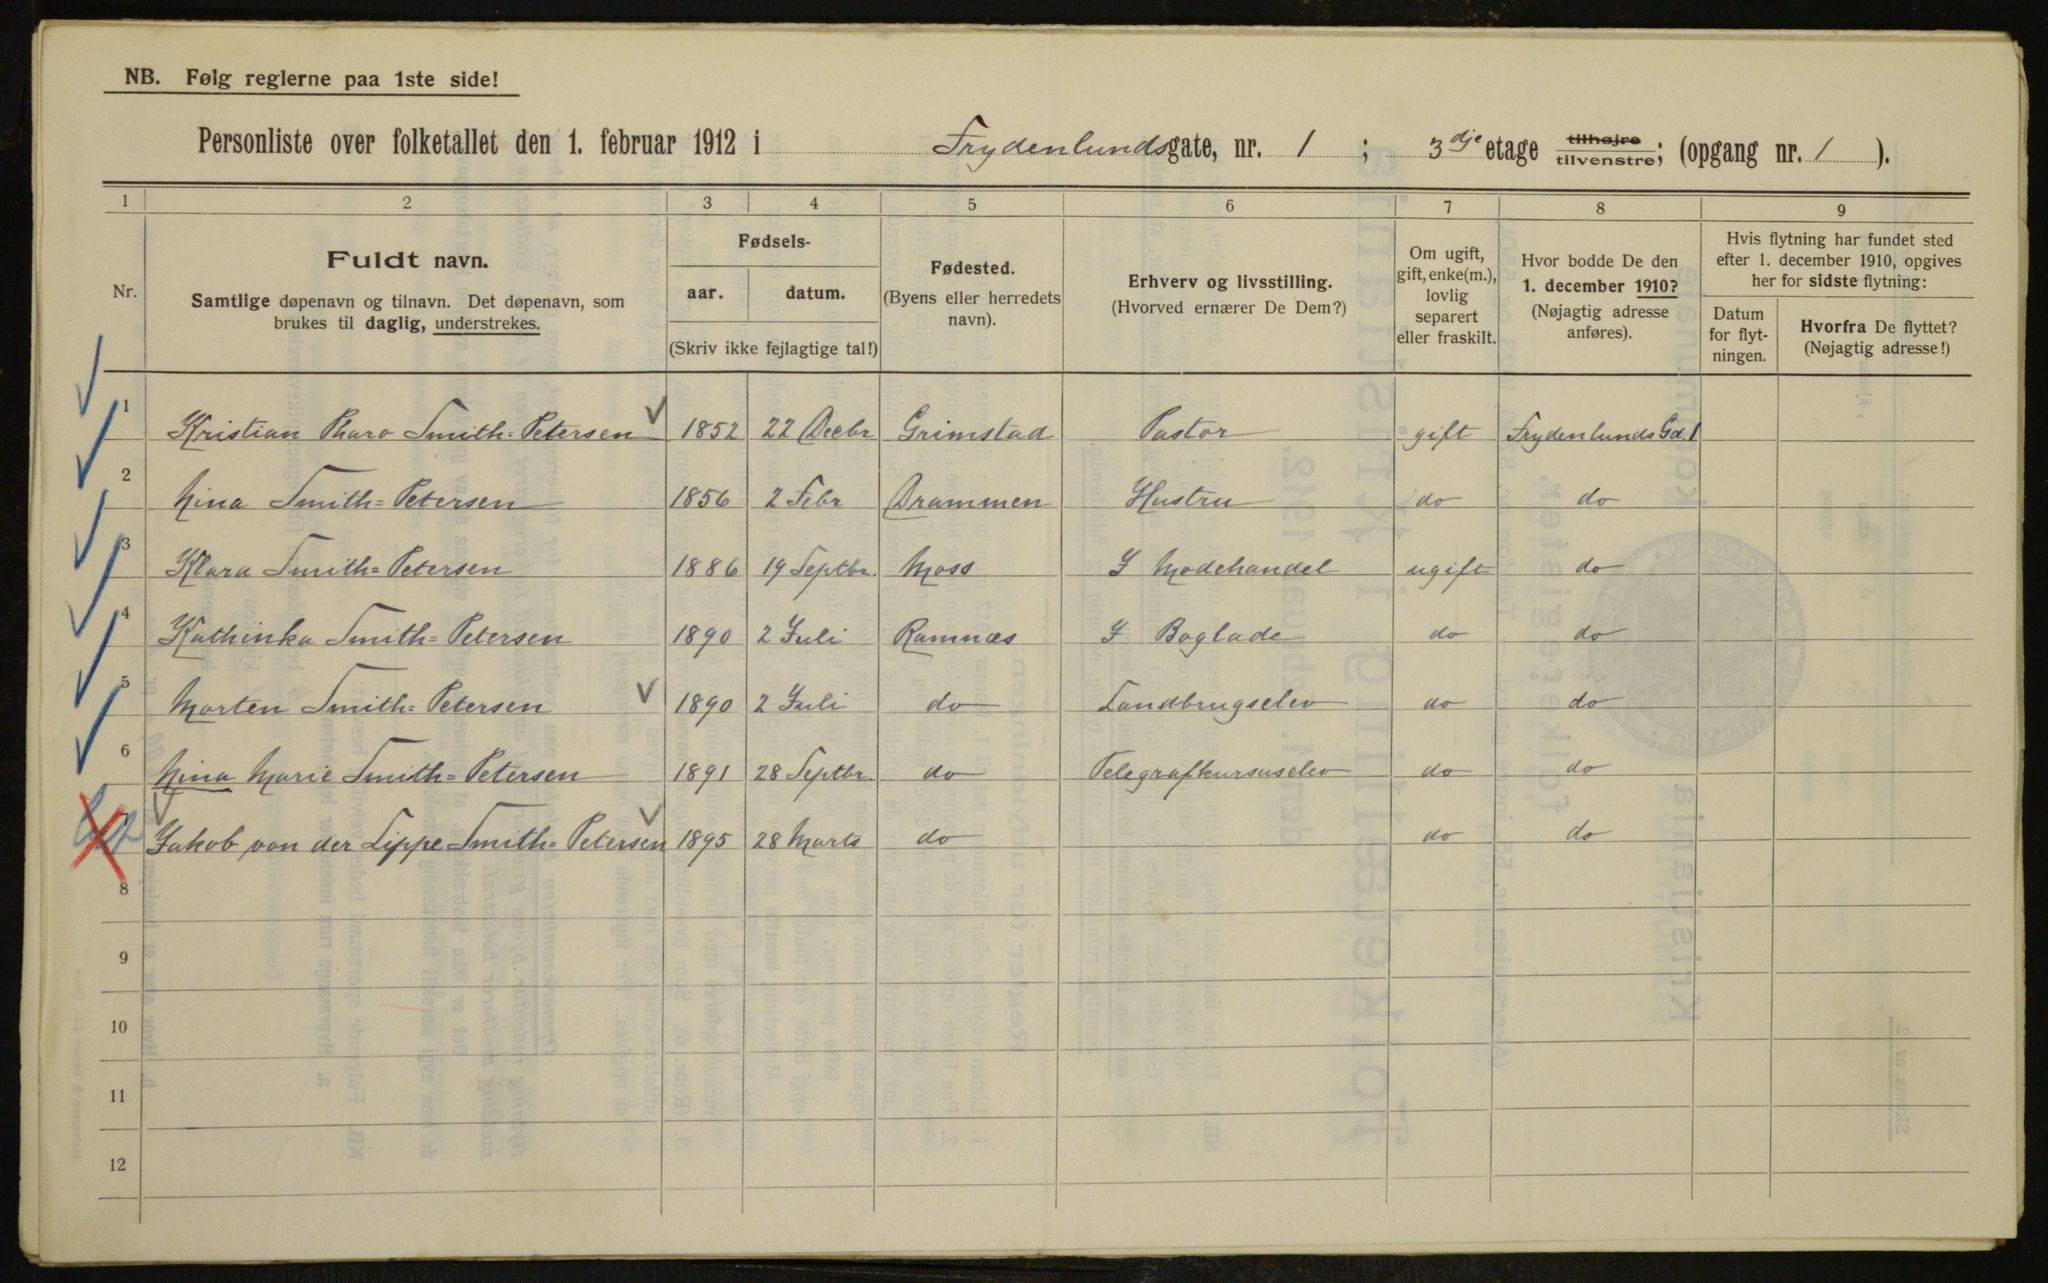 NB. Følg reglerne paa 1ste side!
Personliste over folketallet den 1. februar 1912 i Frydenlundsgate, nr. 1 ; 3dje etage tilhøjre tilvenstre; (opgang nr. 1 ).
1 2 3 4 5 6 7 8 9
Nr.
Fuldt navn.
Samtlige døpenavn og tilnavn. Det døpenavn, som
brukes til daglig, understrekes.
Fødsels-
aar. datum.
(Skriv ikke fejlagtige tal!)
Fødested.
(Byens eller herredets
navn).
Erhverv og livsstilling.
(Hvorved ernærer De Dem?)
Om ugift,
gift, enke(m.),
lovlig
separert
eller fraskilt.
Hvor bodde De den
1. december 1910?
(Nøjagtig adresse
anføres).
Hvis flytning har fundet sted
efter 1. december 1910, opgives
her for sidste flytning:
Datum
for flyt-
ningen.
Hvorfra De flyttet?
(Nøjagtig adresse!)
1 Kristian Pharo Smith=Petersen 1852 22 Decbr Grimstad Pastor gift Frydenlunds Gd. 1
2 Nina Smith=Petersen 1856 2 Febr Drammen Hustru do do
3 Klara Smith=Petersen 1886 19 Septbr. Moss I Modehandel ugift do
4 Kathinka Smith=Petersen 1890 2 Juli Ramnæs I Boglade do do
5 Morten Smith=Petersen 1890 2 Juli do Landbrugselev do do
6 Nina Marie Smith=Petersen 1891 28 Septbr. do Telegrafkursuselev do do
7 Jakob von der Lippe Smith=Petersen 1895 28 Marts do do do
8
9
10
11
12